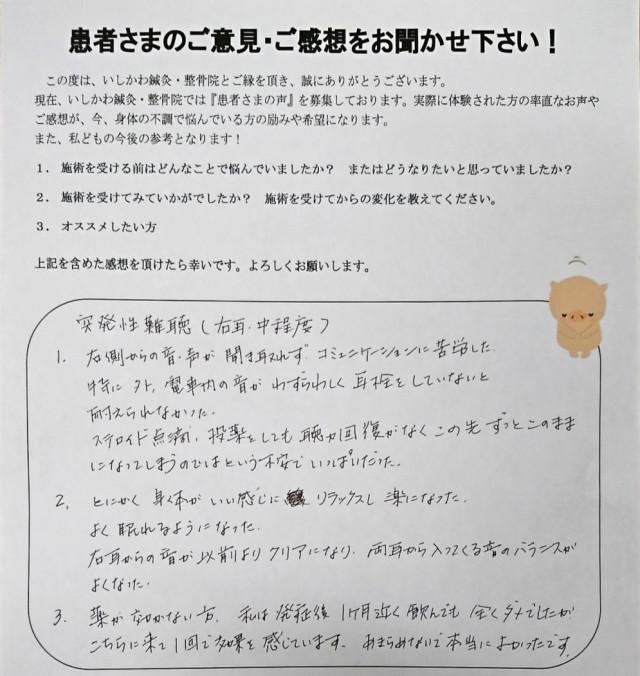 患者さまのご意見・ご感想をお聞かせ下さい！
この度は、いしかわ鍼灸・整骨院とご縁を頂き、誠にありがとうございます。
現在、いしかわ鍼灸・整骨院では『患者さまの声』を募集しております。実際に体験された方の率直なお声や
ご感想が、今、身体の不調で悩んでいる方の励みや希望になります。
また、私どもの今後の参考となります！
1． 施術を受ける前はどんなことで悩んでいましたか？ またはどうなりたいと思っていましたか？
2． 施術を受けてみていかがでしたか？ 施術を受けてからの変化を教えてください。
3． オススメしたい方
上記を含めた感想を頂けたら幸いです。よろしくお願いします。
突発性難聴（右耳・中程度）
1. 右側からの音・声が聞き取れず コミュニケーションに苦労した。
特に外、電車内の音がわずらわしく 耳栓をしていないと
耐えられなかった。
ステロイド点滴、投薬をしても聴力回復がなく この先ずっとこのまま
になってしまうのではという不安でいっぱいだった。
2. とにかく身体がいい感じに リラックスし 楽になった。
よく眠れるようになった。
右耳からの音が以前よりクリアになり、両耳から入ってくる音のバランスが
よくなった。
3. 薬が効かない方。 私は発症後1ヶ月近く飲んでも全くダメでしたが
こちらに来て1回で効果を感じています。あきらめないで本当によかったです。